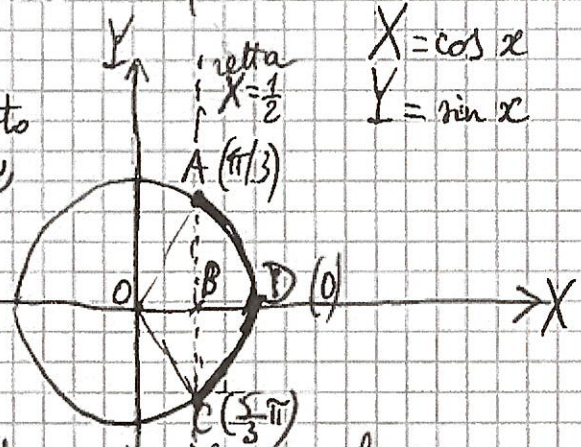 Y
retta
X = 1/2
X = cos x
Y = sin x
to
A (π/3)
O
B
D (0)
X
C (5/3 π)